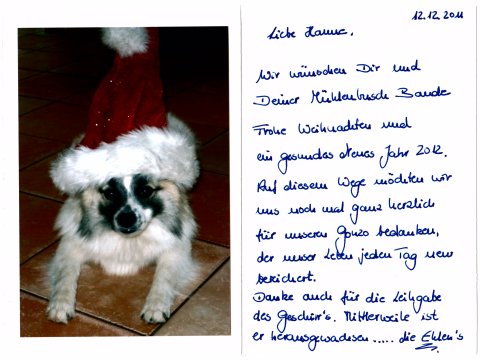 12.12.2011
Liebe Hanne,
Wir wünschen Dir und
Deiner Mühlenbusch Bande
Frohe Weihnachten und
ein gesundes neues Jahr 2012.
Auf diesem Wege möchten wir
uns noch mal ganz herzlich
für unseren Gonzo bedanken,
der unser Leben jeden Tag neu
bereichert.
Danke auch für die Leihgabe
des Geschirr's. Mittlerweile ist
er herausgewachsen..... die Ehlen's